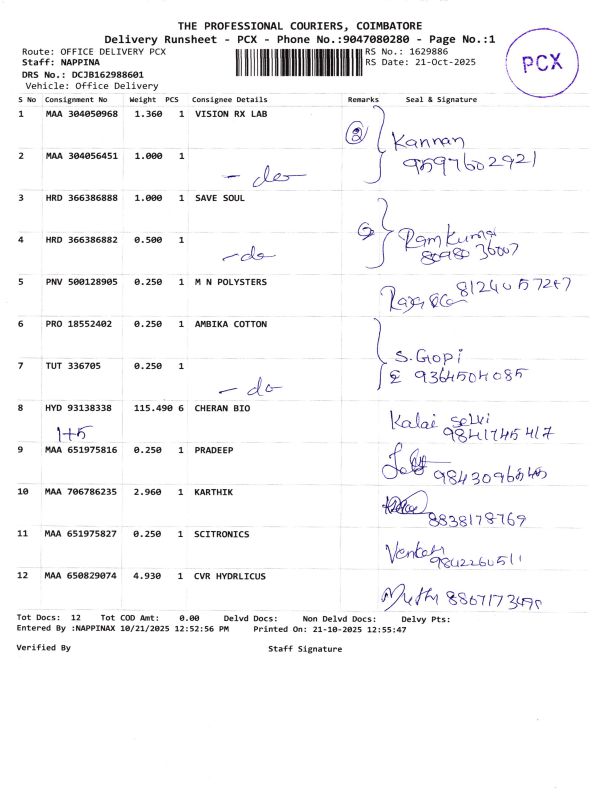 THE PROFESSIONAL COURIERS, COIMBATORE
Delivery Runsheet - PCX - Phone No.:9047080280 - Page No.:1
Route: OFFICE DELIVERY PCX RS No.: 1629886
Staff: NAPPINA RS Date: 21-Oct-2025
PCX
DRS No.: DCJB162988601
Vehicle: Office Delivery
S No Consignment No Weight PCS Consignee Details Remarks Seal & Signature
1 MAA 304050968 1.360 1 VISION RX LAB
② Kannan
2 MAA 304056451 1.000 1 9597602921
- do
3 HRD 366386888 1.000 1 SAVE SOUL
Ramkumar
4 HRD 366386882 0.500 1 80980 36007
- do
5 PNV 500128905 0.250 1 M N POLYSTERS 8124057247
6 PRO 18552402 0.250 1 AMBIKA COTTON
S. Gopi
7 TUT 336705 0.250 1 9364504085
- do
8 HYD 93138338 115.490 6 CHERAN BIO Kalai selvi
1+5 9841745417
9 MAA 651975816 0.250 1 PRADEEP
10 MAA 706786235 2.960 1 KARTHIK
8838178769
11 MAA 651975827 0.250 1 SCITRONICS
Venkat 9842260511
12 MAA 650829074 4.930 1 CVR HYDRLICUS
Muthu
Tot Docs: 12 Tot COD Amt: 0.00 Delvd Docs: Non Delvd Docs: Delvy Pts:
Entered By :NAPPINAX 10/21/2025 12:52:56 PM Printed On: 21-10-2025 12:55:47
Verified By Staff Signature